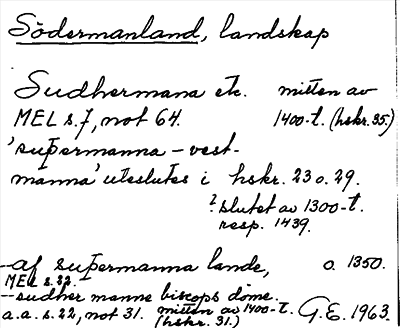 Södermanland, landskap
Sudhermana etc. mitten av
MEL s.7, not 64. 1400-t. (hskr. 35.)
'suþermanna - vest-
manna' uteslutes i hskr. 23 o. 29.
? slutet av 1300-t.
resp. 1439.
--af suþermanna lande, o. 1350.
MEL s. 22.
--sudher manne biscops döme.
a.a. s. 22, not 31. mitten av 1400-t. G.E. 1963.
(hskr. 31.)